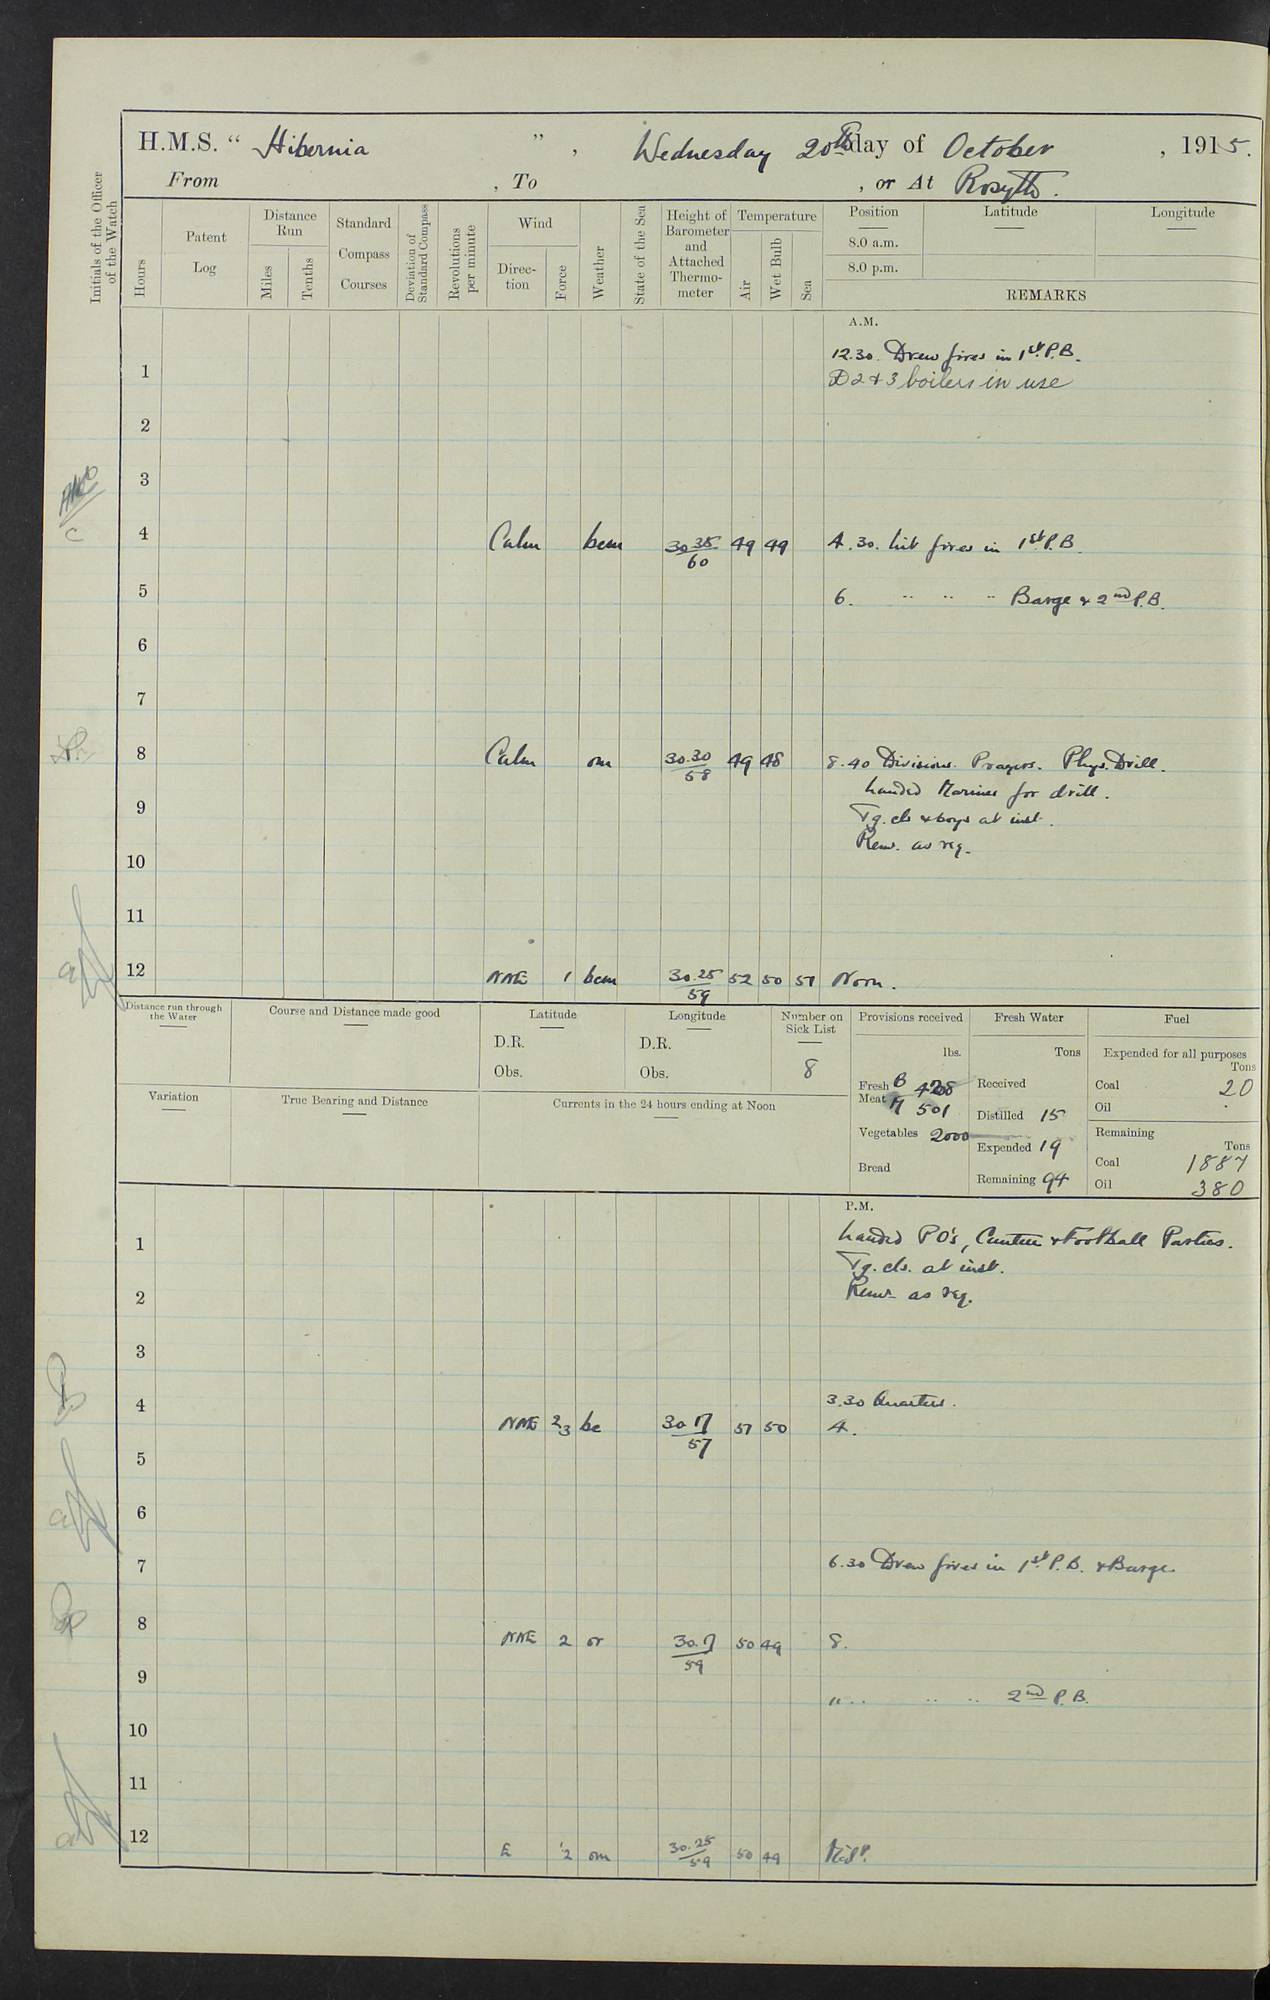 H.M.S. “ Hibernia ”, Wednesday 20th day of October, 1915.
From , To , or At Rosyth.
Initials of the Officer of the Watch
Hours
Patent Log
Distance Run
Miles
Tenths
Standard Compass Courses
Deviation of Standard Compass
Revolutions per minute
Wind
Direc-tion
Force
Weather
State of the Sea
Height of Barometer and Attached Thermo-meter
Temperature
Air
Wet Bulb
Sea
Position
8.0 a.m.
8.0 p.m.
Latitude
Longitude
REMARKS
A.M.
12.30. Drew fires in 1st P.B.
1
2 & 3 boilers in use
2
3
4 Calm bcm 30.35/60 49 49 4.30. Lit fires in 1st P.B.
5
6. " " " Barge & 2nd P.B.
6
7
8 Calm om 30.30/58 49 48 8.40 Divisions. Prayers. Phys. Drill.
Landed Marines for drill.
9
Tg. cls & boys at inst.
Rem. as req.
10
11
12 NNE 1 bcm 30.25/59 52 50 51 Noon.
Distance run through the Water
Course and Distance made good
Latitude
D.R.
Obs.
Longitude
D.R.
Obs.
Number on Sick List
8
Provisions received
lbs.
Fresh Meat B 428
M 501
Vegetables 2000
Bread
Fresh Water
Tons
Received
Distilled 15
Expended 19
Remaining 94
Fuel
Expended for all purposes
Tons
Coal 20
Oil
Remaining
Tons
Coal 1887
Oil 380
Variation
True Bearing and Distance
Currents in the 24 hours ending at Noon
P.M.
Landed PO's, Canteen & Football Parties.
1
Tg. cls. at inst.
2
Rem. as req.
3
3.30 Quarters.
4 NNE 2/3 bc 30.17/57 51 50 4.
5
6
7 6.30 Drew fires in 1st P.B. & Barge
8 NNE 2 or 30.17/59 50 49 8.
9
" " " " 2nd P.B.
10
11
12 E 1/2 om 30.25/59 50 49 Midt.